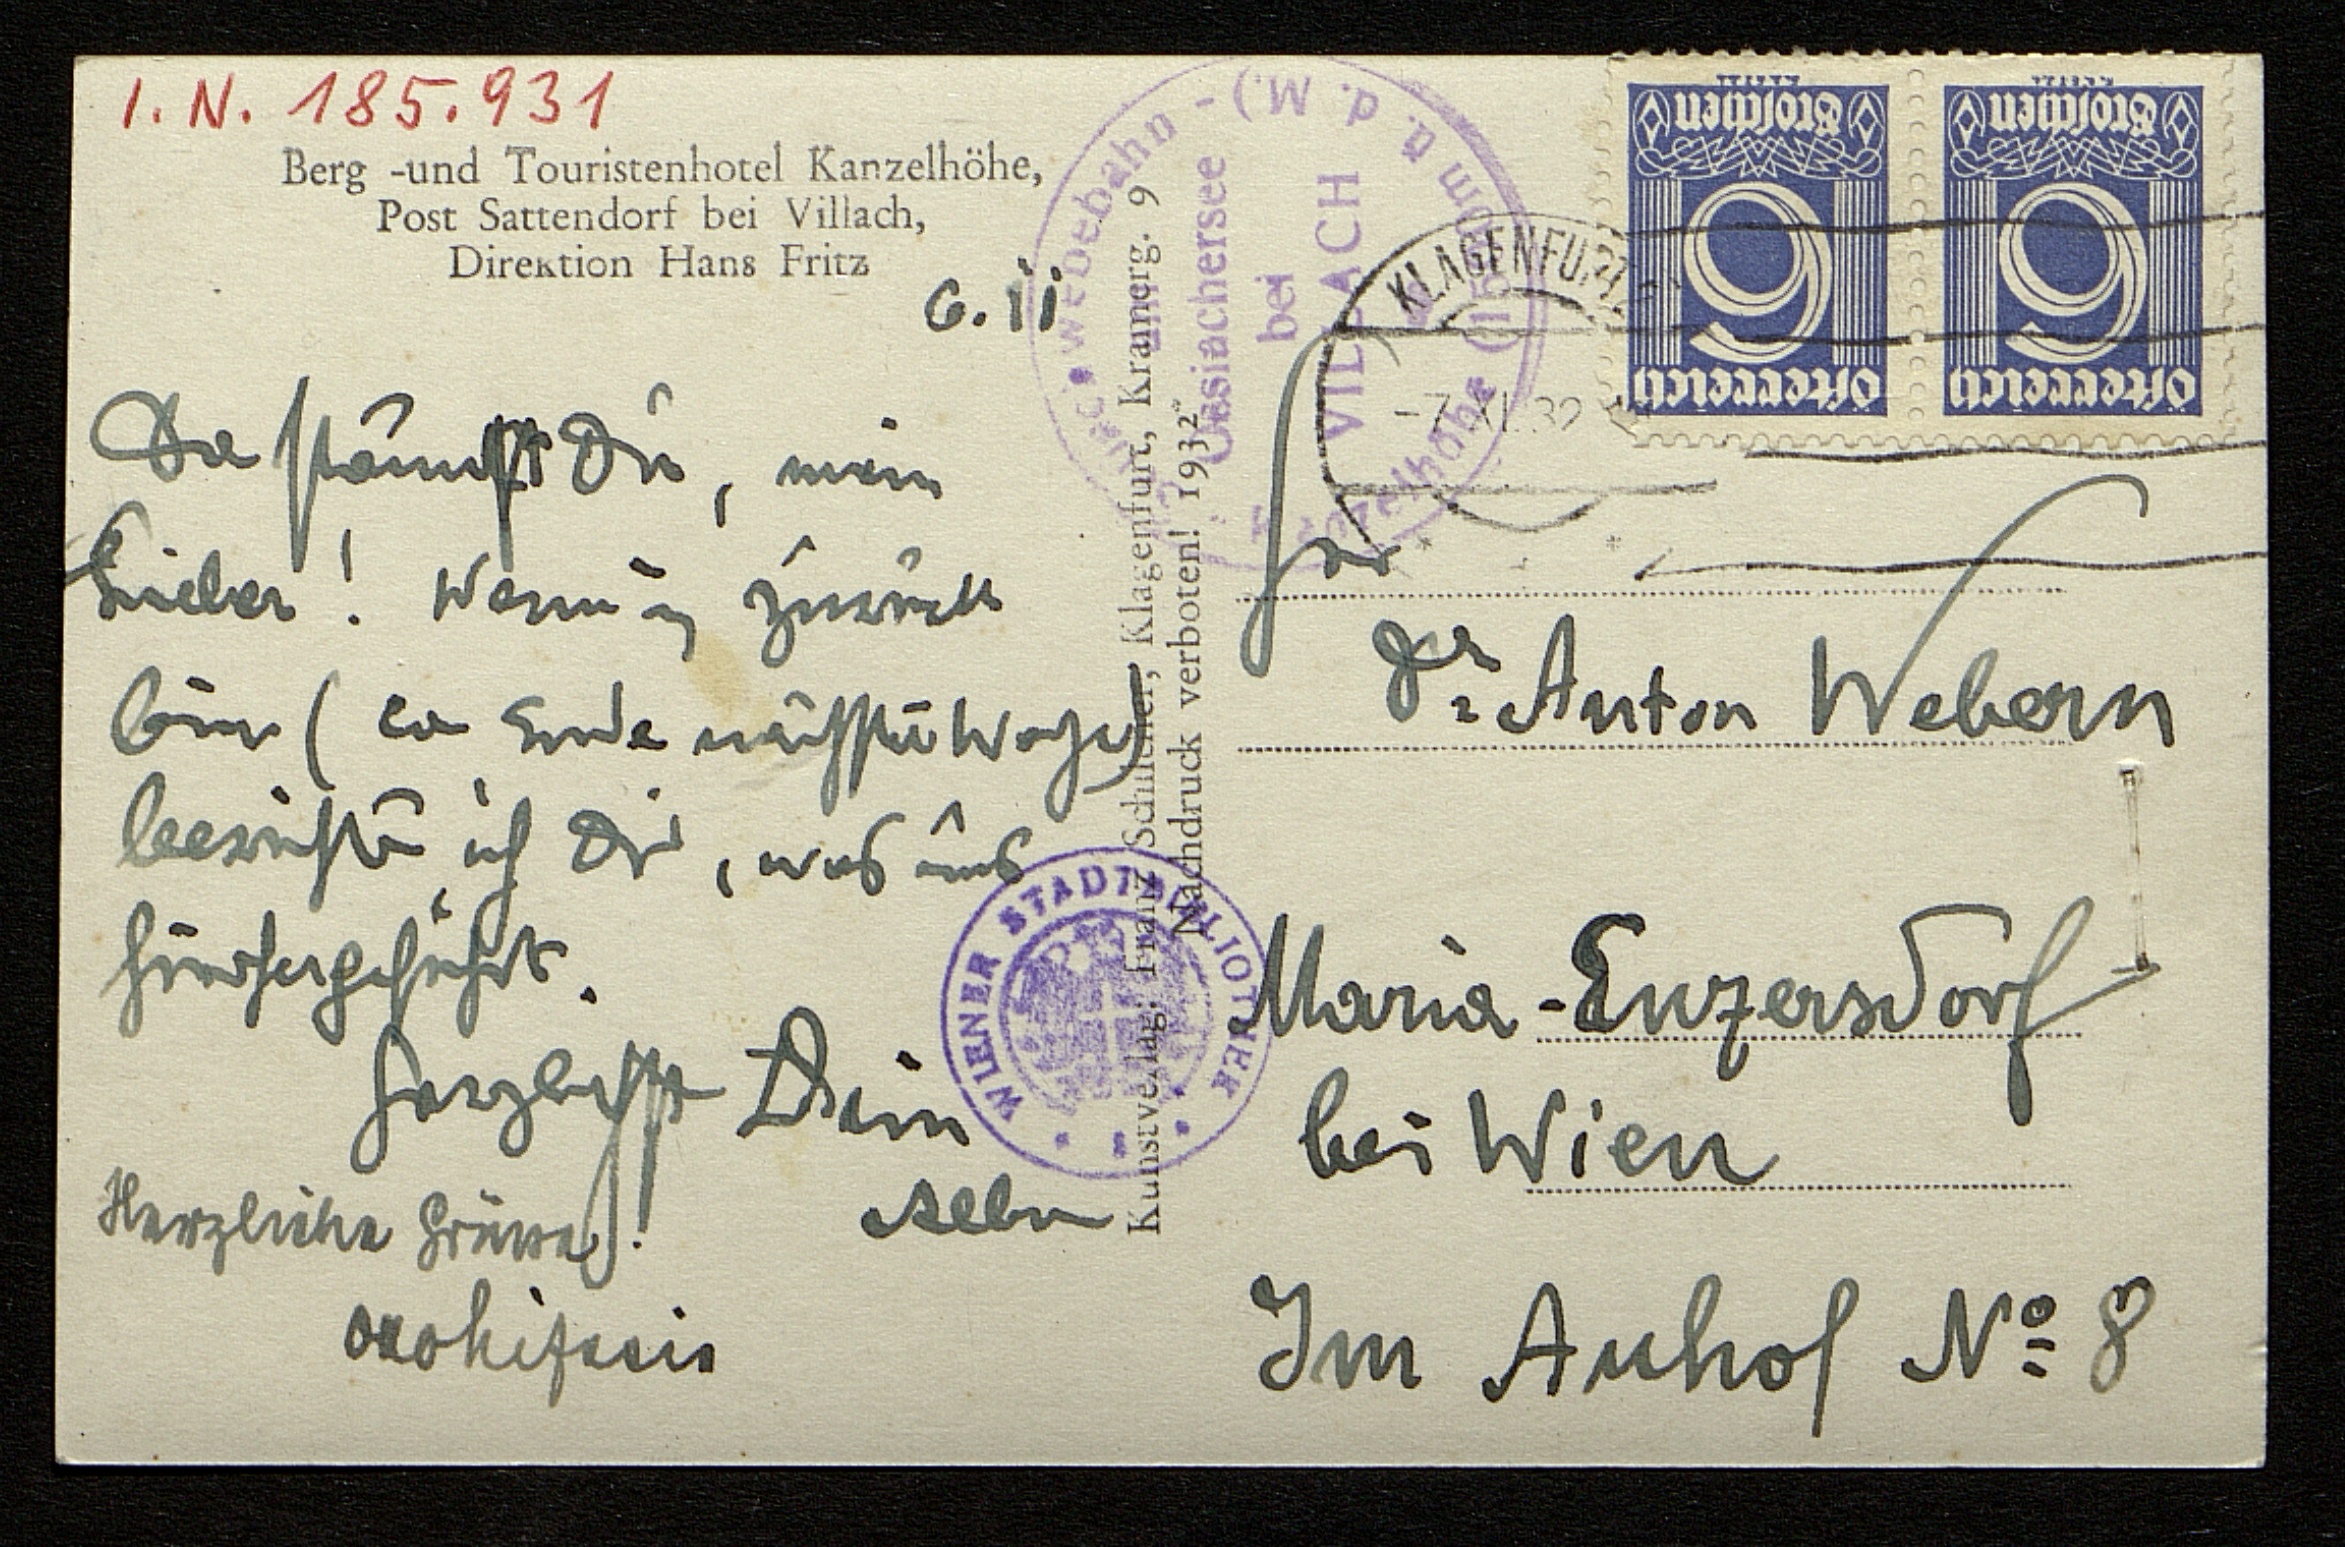 I. N. 185.931
Berg -und Touristenhotel Kanzelhöhe,
Post Sattendorf bei Villach,
Direktion Hans Fritz
6. 11
Da staunst Du, mein
Lieber! Wenn ich zurück
bin (ca Ende nächster Woche)
berichte ich Dir, was uns
hierhergeführt.
Herzlichst Dein
Alban
Herzliche Grüsse!
Kunstverlag: Franz Schilcher, Klagenfurt, Kramerg. 9
Nachdruck verboten! 1932
bei
VILLACH
KLAGENFURT
-7.XI.32
Groschen
6
Österreich
Groschen
6
Österreich
WIENER STADTBIBLIOTHEK
Dr Anton Webern
Maria-Enzersdorf
bei Wien
Im Auhof No 8